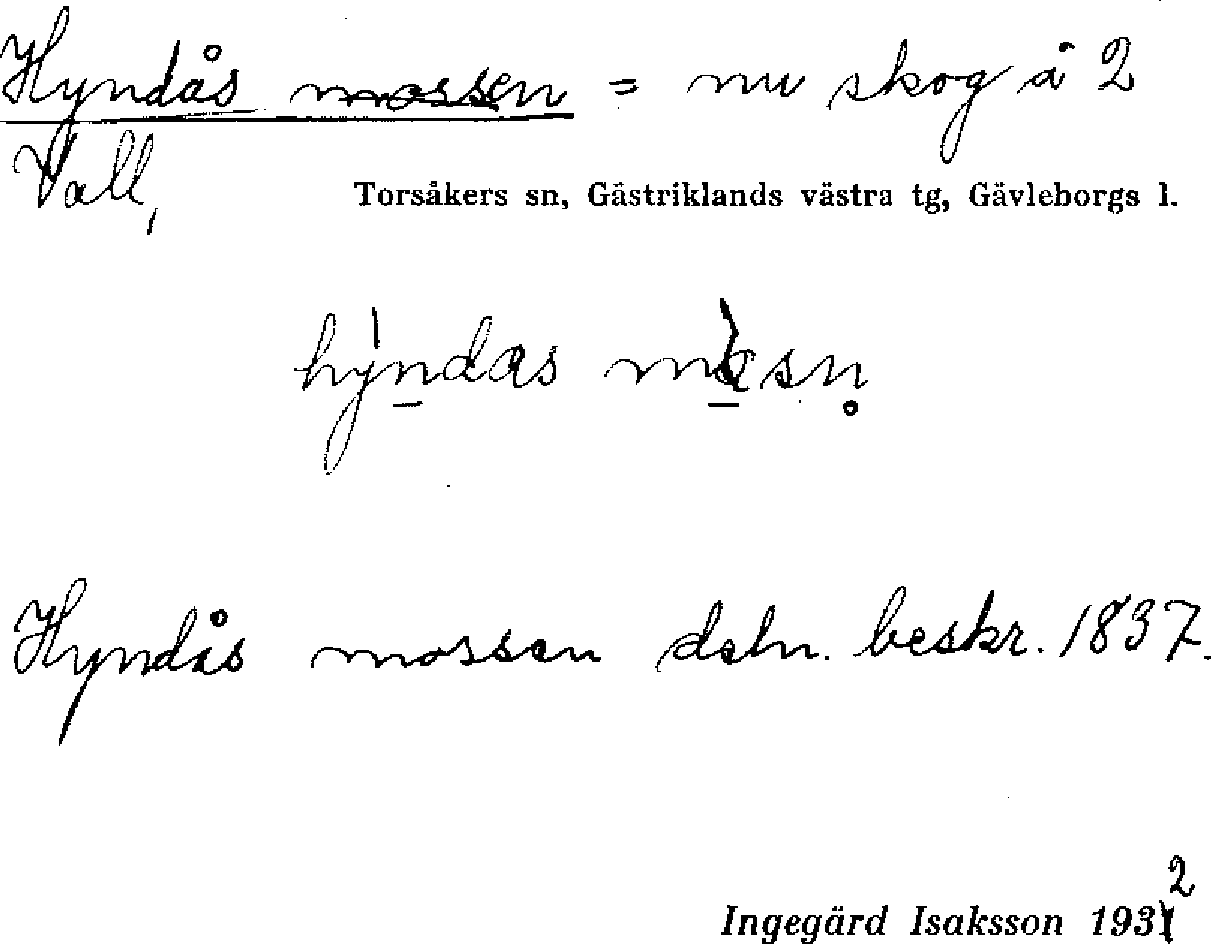 Hyndås mossen = nu skog å 2
Vall,
Torsåkers sn, Gästriklands västra tg, Gävleborgs l.
hýndas mòsn̥
Hyndås mossen deln. beskr. 1837.
Ingegärd Isaksson 1932